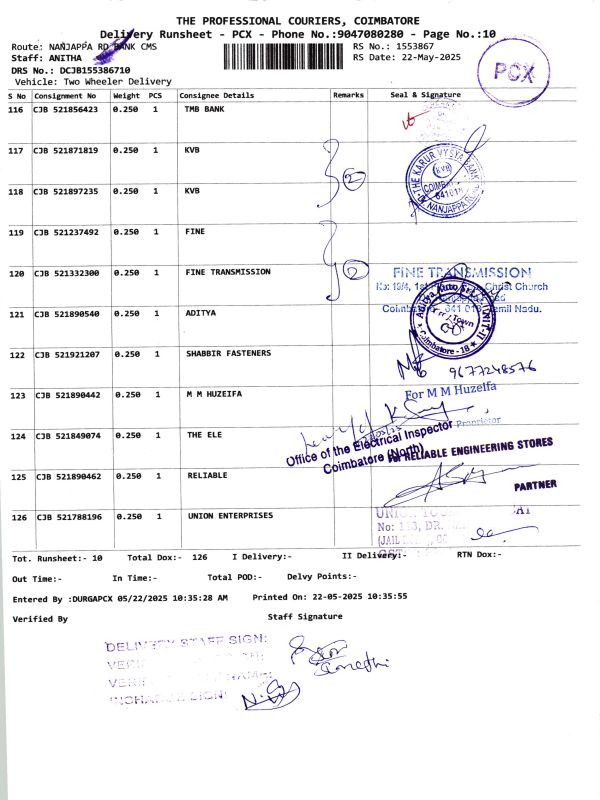 THE PROFESSIONAL COURIERS, COIMBATORE
Delivery Runsheet - PCX - Phone No.:9047080280 - Page No.:10
Route: NANJAPPA RD BANK CMS
RS No.: 1553867
Staff: ANITHA
RS Date: 22-May-2025
DRS No.: DCJB155386710
Vehicle: Two Wheeler Delivery
PCX
S No Consignment No Weight PCS Consignee Details Remarks Seal & Signature
116 CJB 521856423 0.250 1 TMB BANK
117 CJB 521871819 0.250 1 KVB
THE KARUR VYSYA BANK
KVB
COIMBA
641018
NANJAPPA ROAD
2
118 CJB 521897235 0.250 1 KVB
119 CJB 521237492 0.250 1 FINE
2
120 CJB 521332300 0.250 1 FINE TRANSMISSION
FINE TRANSMISSION
Christ Church
Coimbatore 641 018 Tamil Nadu.
121 CJB 521890540 0.250 1 ADITYA
Aditya Auto
Town
Coimbatore - 18
122 CJB 521921207 0.250 1 SHABBIR FASTENERS
9677248576
123 CJB 521890442 0.250 1 M M HUZEIFA
For M M Huzeifa
Proprietor
124 CJB 521849074 0.250 1 THE ELE
Office of the Electrical Inspector
Coimbatore (North)
125 CJB 521890462 0.250 1 RELIABLE
RELIABLE ENGINEERING STORES
PARTNER
126 CJB 521788196 0.250 1 UNION ENTERPRISES
UNION
Tot. Runsheet:- 10 Total Dox:- 126 I Delivery:- II Delivery:- RTN Dox:-
Out Time:- In Time:- Total POD:- Delvy Points:-
Entered By :DURGAPCX 05/22/2025 10:35:28 AM Printed On: 22-05-2025 10:35:55
Verified By Staff Signature
DELIVERY STAFF SIGN:
INCHARGE SIGN: